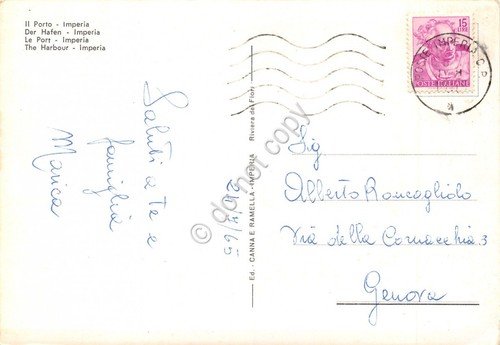 Il Porto - Imperia
Der Hafen - Imperia
Le Port - Imperia
The Harbour - Imperia
15
LIRE
POSTE ITALIANE
Saluti a te e
famiglia
Marica
Ed. - CANNA E RAMELLA - IMPERIA Riviera dei Fiori
do not copy
Sig
Alberto Roncagliolo
Via della Cornacchia 3
Genova